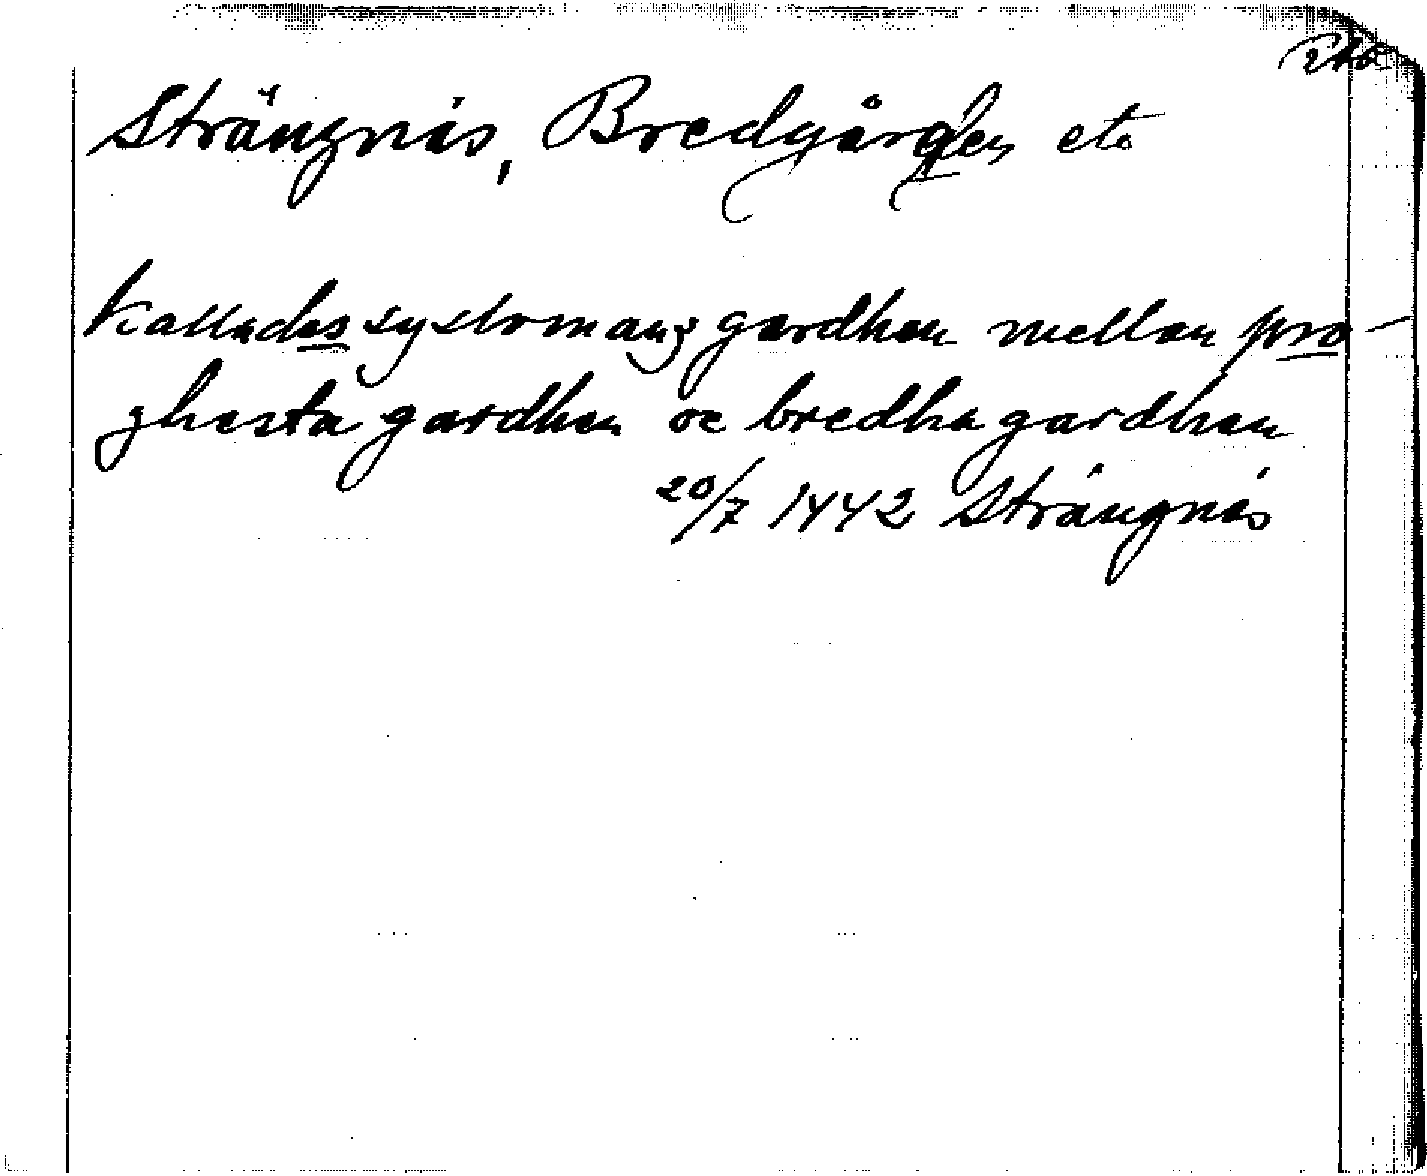 Strängnäs, Bredgården etc
Kallades systromanz gardhen mellan pro-
zhesta gardhen oc bredha gardhen
20/7 1442 Strängnäs